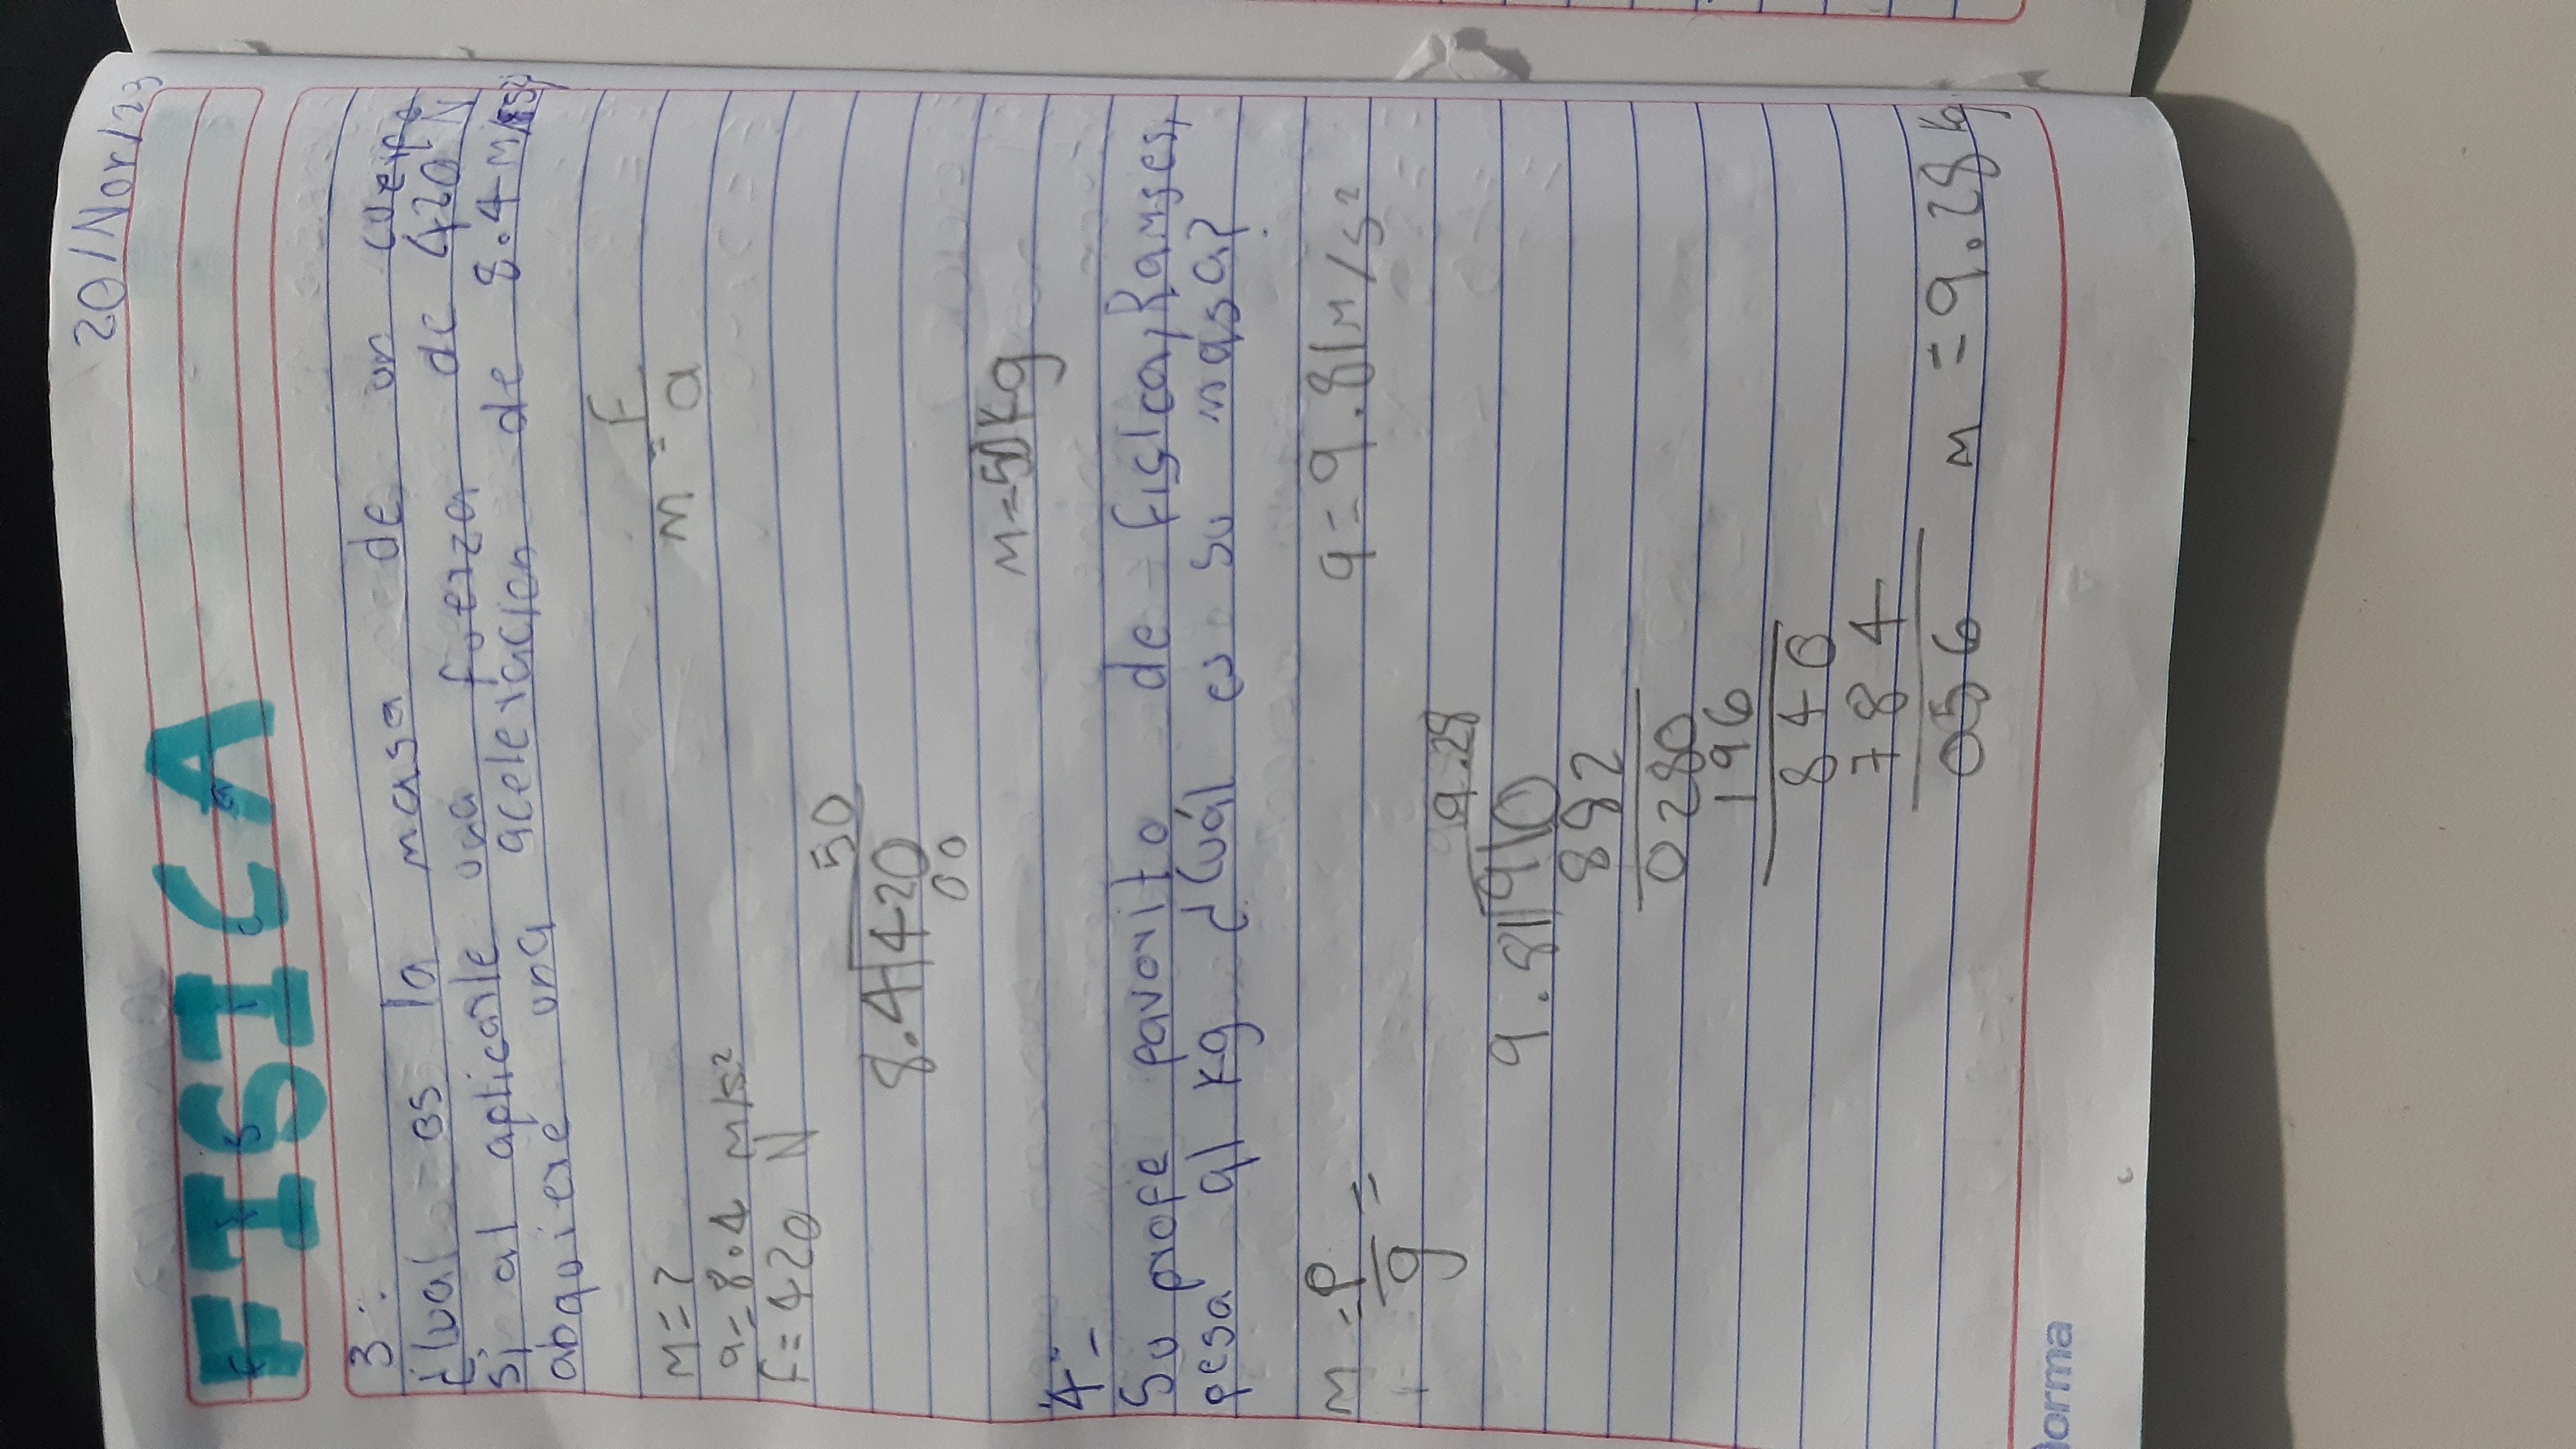 20/Nov/23
FISICA
3.-
¿Cual es la masa de un cuerpo
si al aplicarle una fuerza de 420 N
abquiere una aceleracion de 8.4 m/s²
m = F
a
M = ?
a = 8.4 m/s²
F = 420 N
50
8.4 420
00
M = 50 Kg
4.-
Su profe pavorito de fisica, Ramses,
pesa 91 kg ¿Cuál es su masa?
m = P
g =
g = 9.81 m/s²
9.28
9.81 910
882
0280
196
840
784
056
m = 9.28 kg
norma